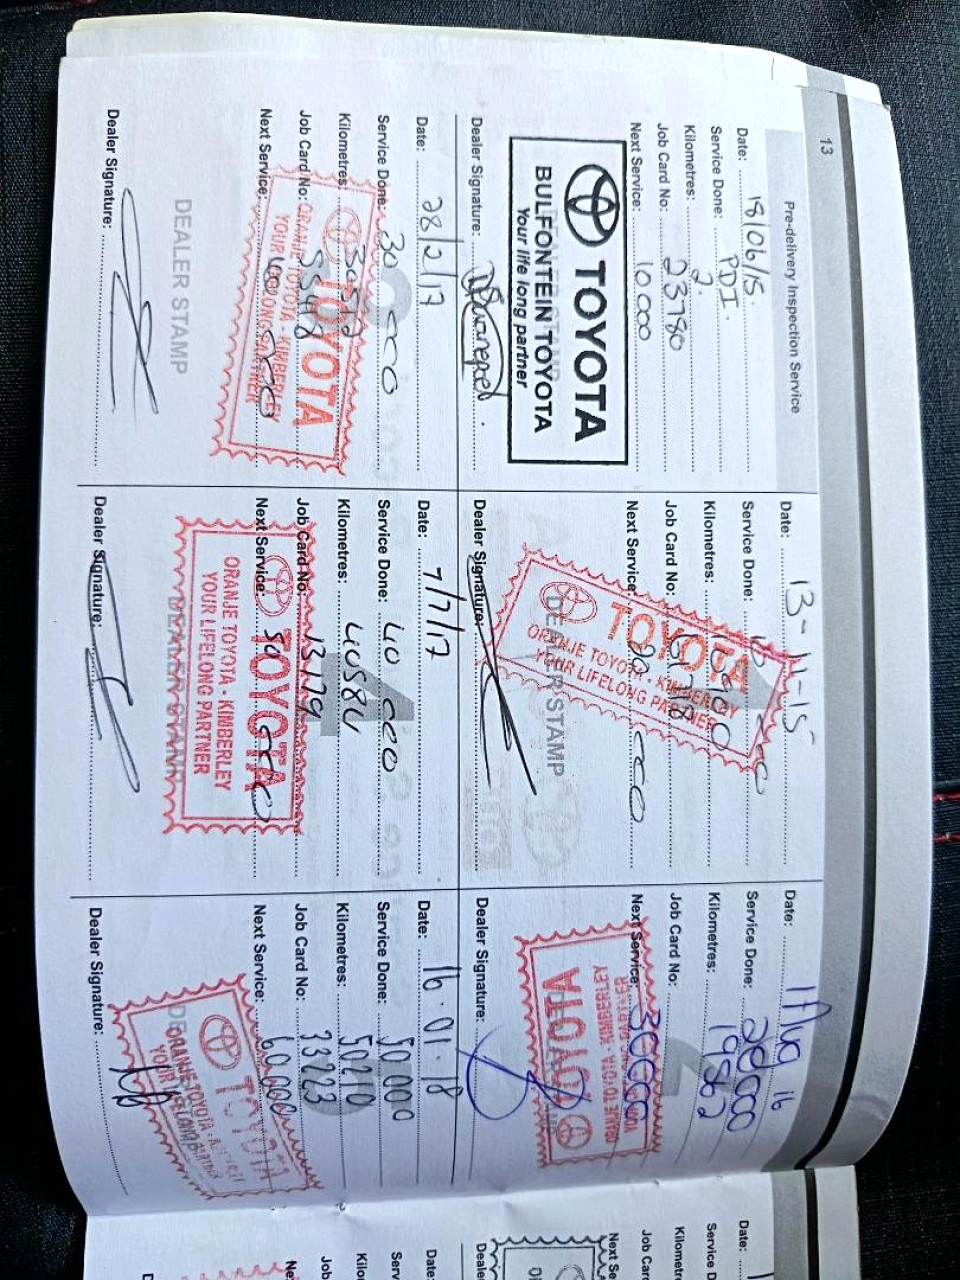 13
Pre-delivery Inspection Service
Date: 18/06/15.
Service Done: PDI.
Kilometres: 2.
Job Card No: 23780
Next Service: 10 000
TOYOTA
BULFONTEIN TOYOTA
Your life long partner
Dealer Signature:
Date: 13-11-15
Service Done:
Kilometres:
Job Card No:
Next Service:
TOYOTA
ORANJE TOYOTA - KIMBERLEY
YOUR LIFELONG PARTNER
DEALER STAMP
Dealer Signature:
Date: 1 Aug 16
Service Done: 20 000
Kilometres: 19562
Job Card No:
Next Service: 30000
TOYOTA
ORANJE TOYOTA - KIMBERLEY
YOUR LIFELONG PARTNER
Dealer Signature:
Date: 28/2/17
Service Done: 30 000
Kilometres:
Job Card No:
Next Service:
TOYOTA
ORANJE TOYOTA - KIMBERLEY
YOUR LIFELONG PARTNER
DEALER STAMP
Dealer Signature:
Date: 7/7/17
Service Done: 40 000
Kilometres: 40584
Job Card No: 13179
Next Service:
TOYOTA
ORANJE TOYOTA - KIMBERLEY
YOUR LIFELONG PARTNER
DEALER STAMP
Dealer Signature:
Date: 16.01.18
Service Done: 50 000
Kilometres: 50210
Job Card No: 33223
Next Service: 60 000
TOYOTA
ORANJE TOYOTA
Dealer Signature:
Date:
Service D
Kilomet
Job Car
Next Se
Dealer
Date:
Serv
Kilo
Job
Ne
D